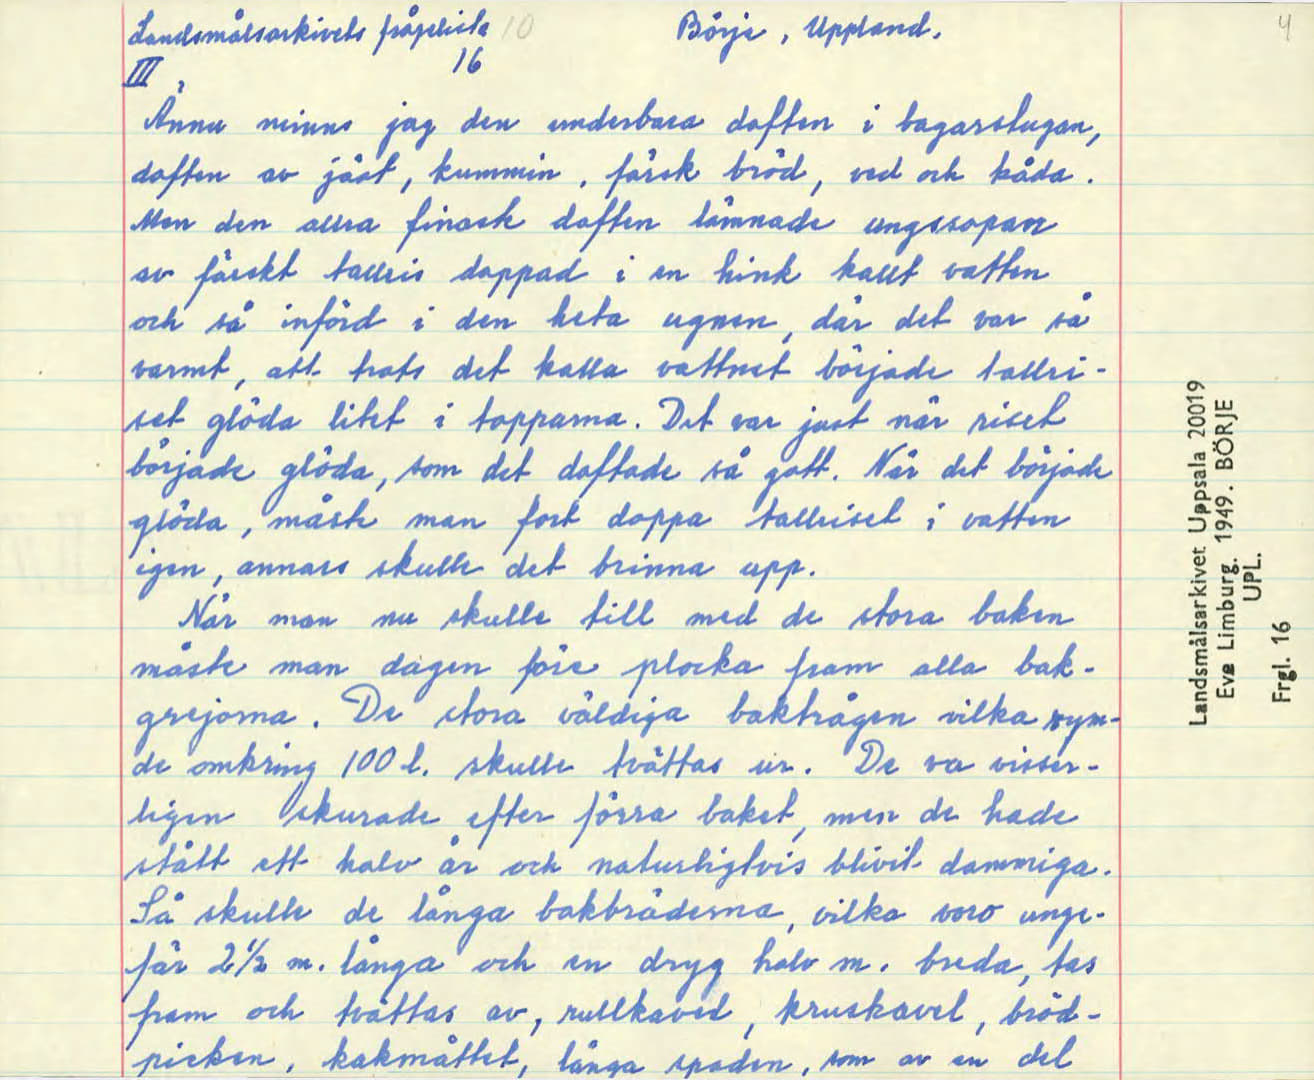 Landsmålsarkivets frågelista 10 Börje, Uppland. 4
III 16
Ännu minns jag den underbara doften i bagarstugan,
doften av jäst, kummin, färsk bröd, ved och kåda.
Men den allra finaste doften lämnade ungssopan
av färskt tallris doppad i en hink kallt vatten
och så införd i den heta ugnen, där det var så
varmt, att trots det kalla vattnet började tallri-
set glöda litet i topparna. Det var just när riset
började glöda, som det doftade så gott. När det började
glöda, måste man fort doppa tallriset i vatten
igen, annars skulle det brinna upp.
När man nu skulle till med de stora baken
måste man dagen före plocka fram alla bak-
grejorna. De stora väldiga baktrågen vilka rym-
de omkring 100 l. skulle tvättas ur. De va visser-
ligen skurade efter förra baket, men de hade
stått ett halv år och naturligtvis blivit dammiga.
Så skulle de långa bakbräderna, vilka voro unge-
fär 2 1/2 m. långa och en dryg halv m. breda, tas
fram och tvättas av, rullkavel, kruskavel, bröd-
picken, kakmåttet, långa spaden, som av en del
Landsmålsarkivet Uppsala 20019
Eva Limburg. 1949. BÖRJE
UPL.
Frgl. 16